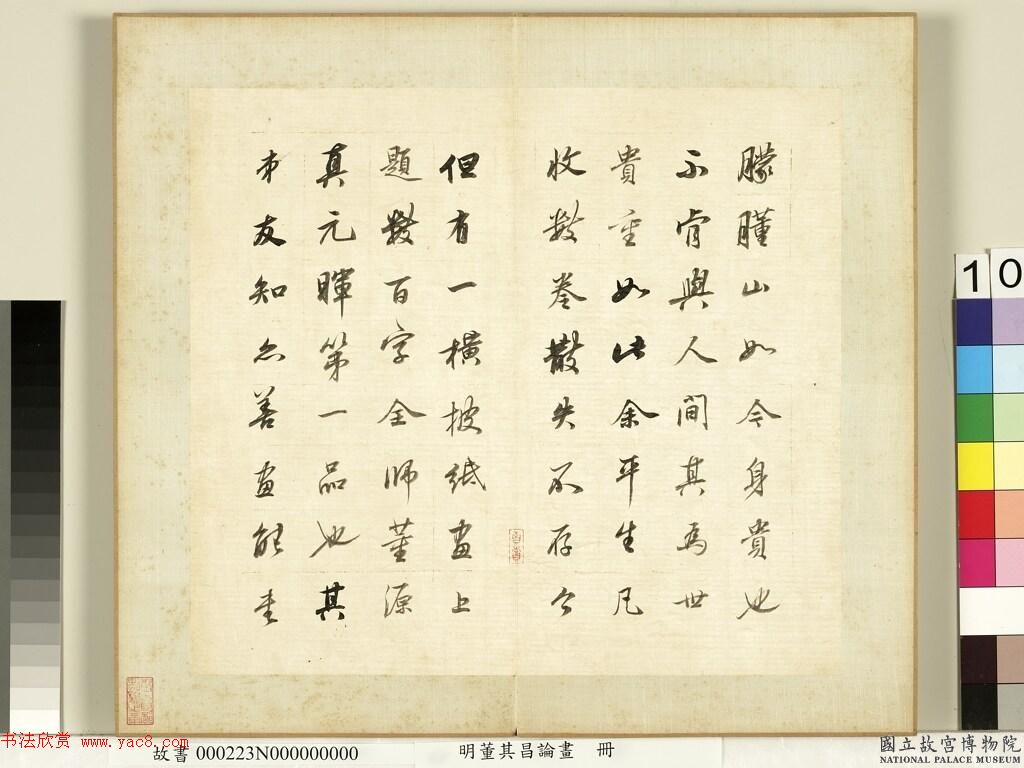 朦朣山如今身貴也
不肯與人間其為世
貴重如此余平生凡
收數卷散失不存今
但有一橫披紙畫上
題數百字全師董源
真元暉第一品也其
弟友知亦善畫能書
书法欣赏 www.yac8.com
故書 000223N000000000
明董其昌論畫 冊
國立故宮博物院
NATIONAL PALACE MUSEUM
10